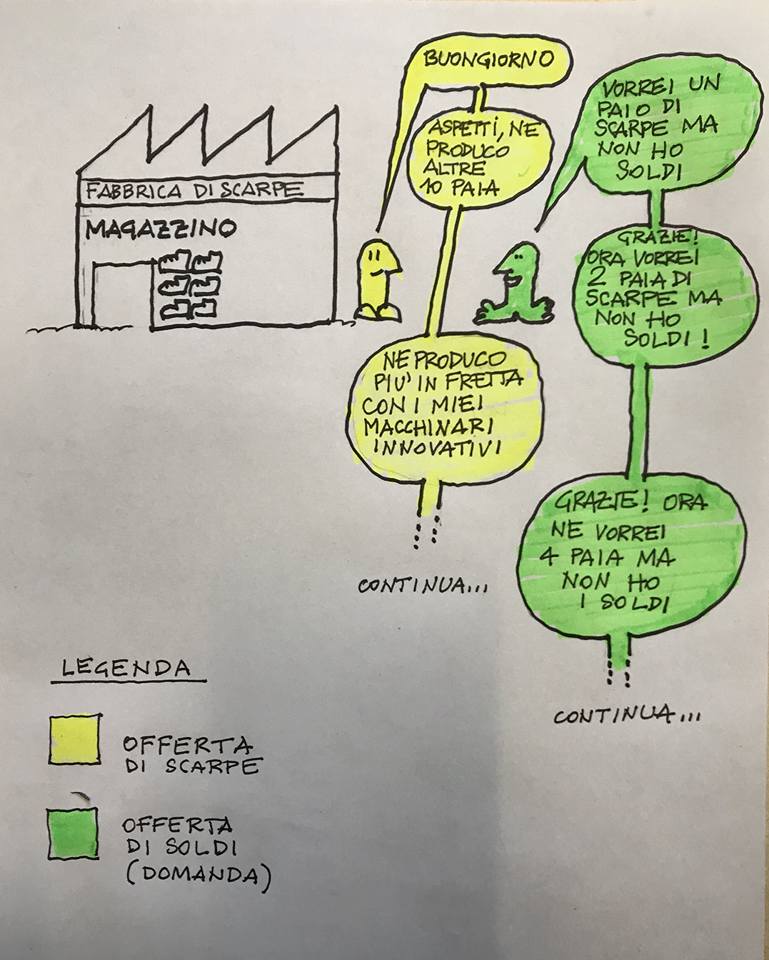 FABBRICA DI SCARPE
MAGAZZINO
BUONGIORNO
ASPETTI, NE
PRODUCO
ALTRE
10 PAIA
NE PRODUCO
PIU' IN FRETTA
CON I MIEI
MACCHINARI
INNOVATIVI
CONTINUA...
VORREI UN
PAIO DI
SCARPE MA
NON HO
SOLDI
GRAZIE!
ORA VORREI
2 PAIA DI
SCARPE MA
NON HO
SOLDI!
GRAZIE! ORA
NE VORREI
4 PAIA MA
NON HO
I SOLDI
CONTINUA...
LEGENDA
OFFERTA
DI SCARPE
OFFERTA
DI SOLDI
(DOMANDA)